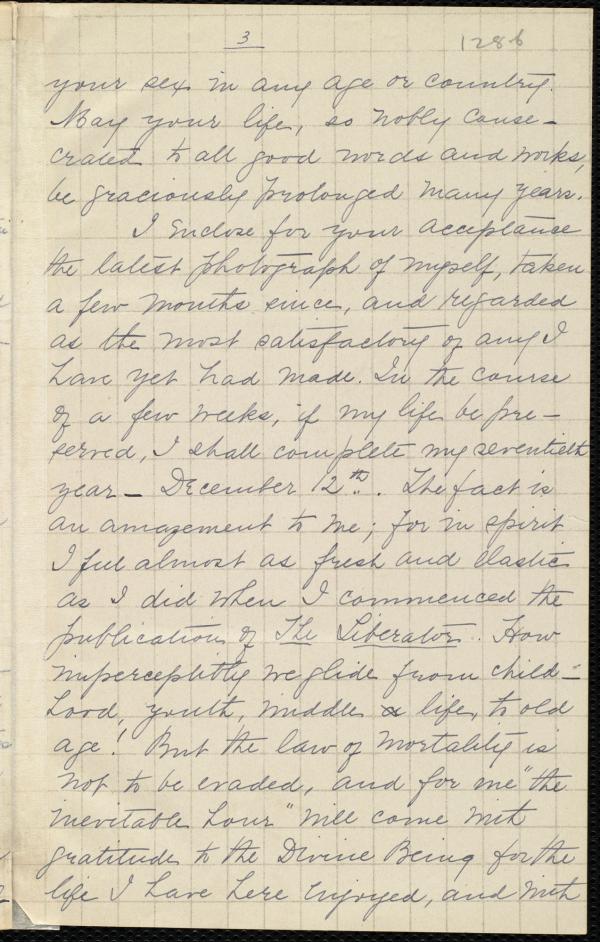 3
1286
your sex in any age or country.
May your life, so nobly conse-
crated to all good words and works,
be graciously prolonged many years.
I enclose for your acceptance
the latest photograph of myself, taken
a few months since, and regarded
as the most satisfactory of any I
have yet had made. In the course
of a few weeks, if my life be pre-
served, I shall complete my seventieth
year - December 12th. The fact is
an amazement to me; for in spirit
I feel almost as fresh and elastic
as I did when I commenced the
publication of The Liberator. How
imperceptibly we glide from child-
hood, youth, middle life, to old
age! But the law of mortality is
not to be evaded, and for me "the
inevitable hour" will come with
gratitude to the Divine Being for the
life I have here enjoyed, and with